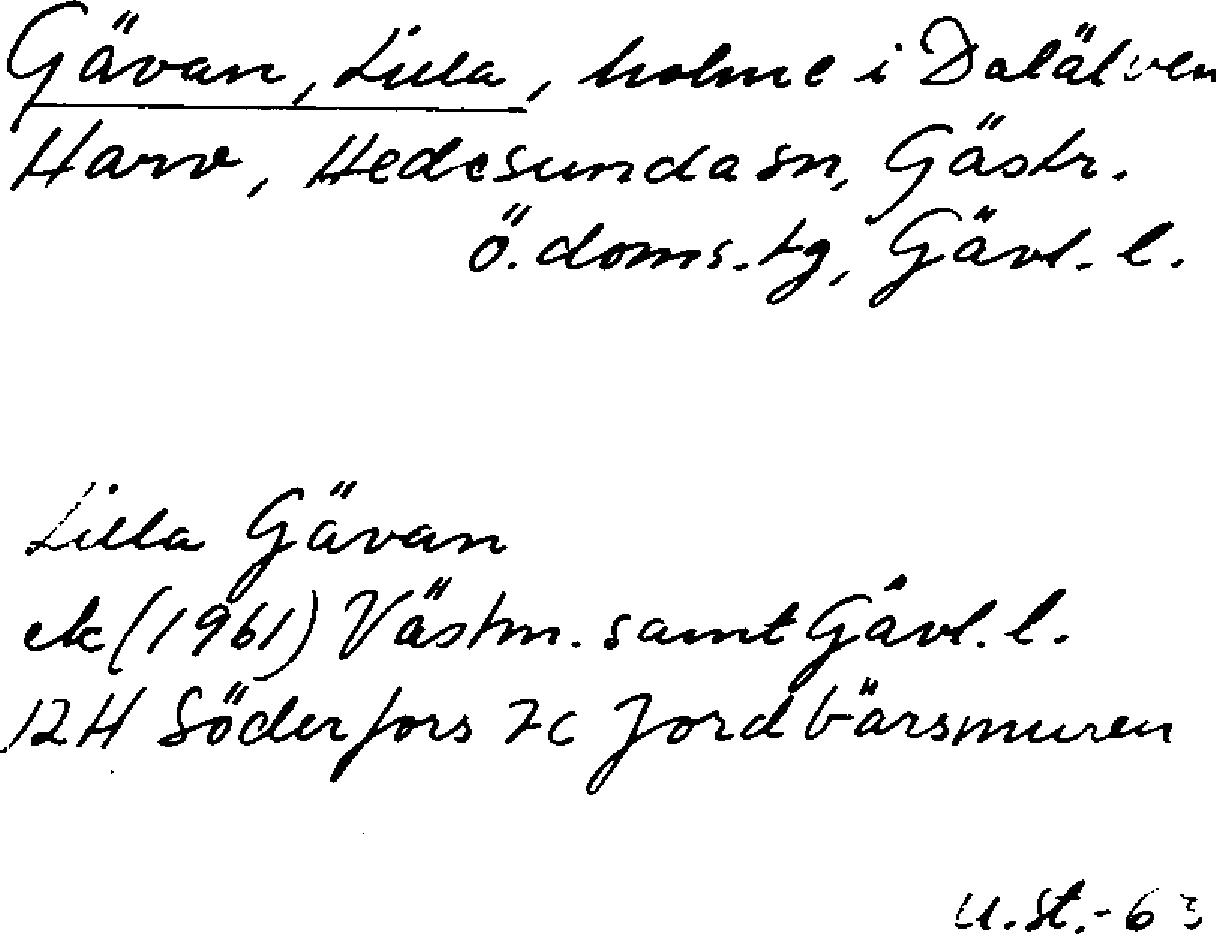 Gävan, Lilla, holme i Dalälven
Harv, Hedesunda sn, Gästr.
ö. doms. tg, Gävl. l.
Lilla Gävan
ek (1961) Västm. samt Gävl. l.
12H Söderfors 7c Jordbärsmuren
U.St.-63